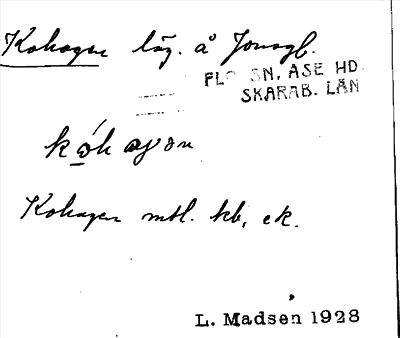 Kohagen läg. å Jonsgb.
FLO SN, ÅSE HD.
SKARAB. LÄN
Kohagen mtl. kb, ek.
L. Madsen 1928